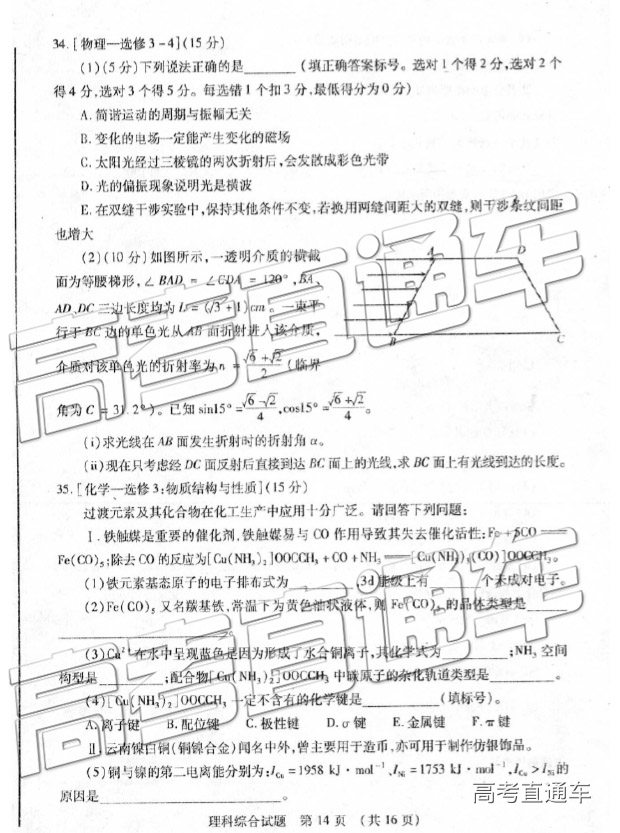 34.[物理—选修3-4](15分)
(1)(5分)下列说法正确的是______(填正确答案标号。选对1个得2分,选对2个
得4分,选对3个得5分。每选错1个扣3分,最低得分为0分)
A.简谐运动的周期与振幅无关
B.变化的电场一定能产生变化的磁场
C.太阳光经过三棱镜的两次折射后,会发散成彩色光带
D.光的偏振现象说明光是横波
E.在双缝干涉实验中,保持其他条件不变,若换用两缝间距大的双缝,则干涉条纹间距
也增大
(2)(10分)如图所示,一透明介质的横截
面为等腰梯形,∠BAD=∠CDA=120°,BA、
AD、DC三边长度均为L=(√3+1)cm。一束平
行于BC边的单色光从AB面折射进入该介质,
介质对该单色光的折射率为n=(√6+√2)/2(临界
角为C=31.2°)。已知sin15°=(√6-√2)/4,cos15°=(√6+√2)/4。
A D
B C
(i)求光线在AB面发生折射时的折射角α。
(ii)现在只考虑经DC面反射后直接到达BC面上的光线,求BC面上有光线到达的长度。
35.[化学—选修3:物质结构与性质](15分)
过渡元素及其化合物在化工生产中应用十分广泛。请回答下列问题:
Ⅰ.铁触媒是重要的催化剂,铁触媒易与CO作用导致其失去催化活性:Fe+5CO══
Fe(CO)₅;除去CO的反应为[Cu(NH₃)₂]OOCCH₃+CO+NH₃══[Cu(NH₃)₃(CO)]OOCCH₃。
(1)铁元素基态原子的电子排布式为______,3d能级上有______个未成对电子。
(2)Fe(CO)₅又名羰基铁,常温下为黄色油状液体,则Fe(CO)₅的晶体类型是______
______。
(3)Cu²⁺在水中呈现蓝色是因为形成了水合铜离子,其化学式为______;NH₃空间
构型是______;配合物[Cu(NH₃)₂]OOCCH₃中碳原子的杂化轨道类型是______。
(4)[Cu(NH₃)₂]OOCCH₃一定不含有的化学键是______(填标号)。
A.离子键 B.配位键 C.极性键 D.σ键 E.金属键 F.π键
Ⅱ.云南镍白铜(铜镍合金)闻名中外,曾主要用于造币,亦可用于制作仿银饰品。
(5)铜与镍的第二电离能分别为:I_Cu=1958 kJ·mol⁻¹、I_Ni=1753 kJ·mol⁻¹,I_Cu>I_Ni的
原因是______
高考直通车
高考直通车
高考直通车
理科综合试题 第14页 (共16页)